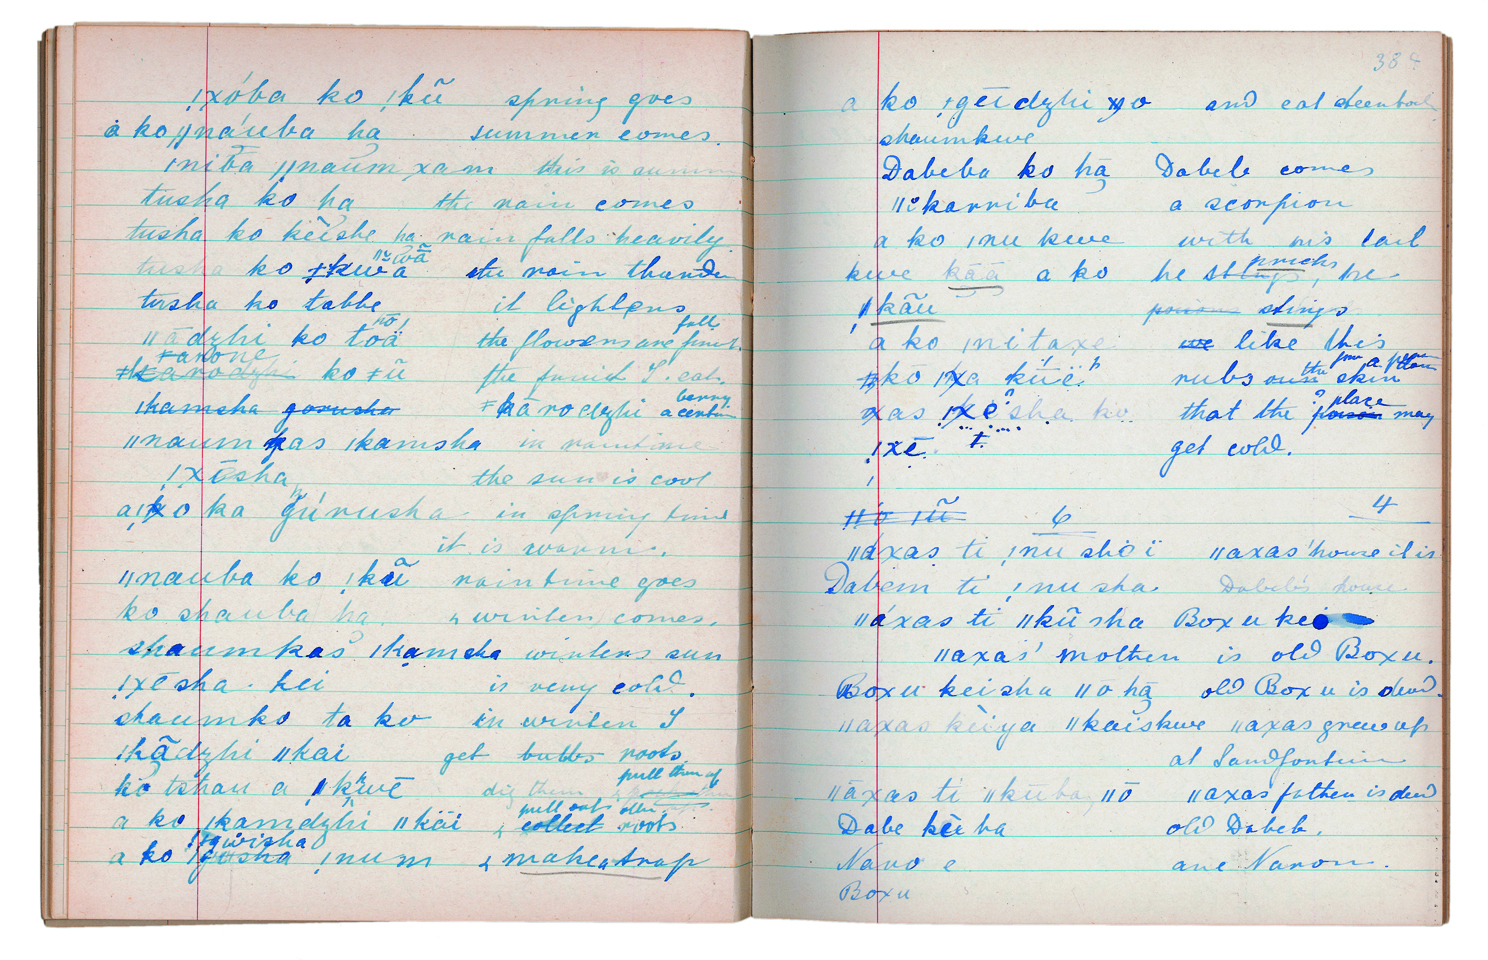 ǃxóba ko ǃkũ spring goes
a ko ǁnáuba ha summer comes.
ǀniba ǁnaum xam this is summ
tusha ko ha the rain comes
tusha ko kèishe ha rain falls heavily.
tusha ko ǂkuwã the rain thunder
tusha ko tabbe it lightens
nō, fall
ǁādzhi ko toä the flowers are finish.
ǂarone
ko ǂũ the fruit I eat.
berry
ǀkamsha gorusha ǂkārodzhi a certain
ǁnaum xas ǀkamsha in raintime
ǃxēsha the sun is cool
a ko ka gúrusha in spring time
it is warm.
ǁnauba ko ǃkũ raintime goes
ko shauba ha. & winter comes.
shaumkas ǀkamsha winters sun
ǃxēsha kei is very cold.
shaumko ta ko in winter I
ǀkādzhi ǁkai get bubbs roots
pull them up
ko tshau a ǁkwē dig them &
pull out other
a ko ǀkamdzhi ǁkäi & collect roots
ǀgwisha
a ko ǀgusha ǃnum & make a trap
384
a ko ǂgēidzhi yo and eat steenbok
shaumkwe
Dabeba ko hā Dabeb comes
ǁkarriba a scorpion
a ko ǀnu kwe with his tail
pricks
kwe kãã a ko he stings, he
ǁkãu poison stings
a ko ǀnitaxe we like this
ko ǀxa kūë rubs our the skin
? place
xas ǃxēsha ko that the poison may
ǃxē. get cold.
ǁō ǀũ 6 4
ǁáxas ti ǃnu shoï ǁaxas' house it is
Dabem ti ǃnusha Dabeb's house
ǁáxas ti ǁkũ sha Boxu kei
ǁaxas' mother is old Boxu.
Boxu keisha ǁō hã old Boxu is dead.
ǁaxas kèiya ǁkaiskwe ǁaxas grew up
at Sandfontein
ǁāxas ti ǁkūba ǁō ǁaxas father is dead
Dabe kèiba old Dabeb.
Naro e are Naron.
Boxu